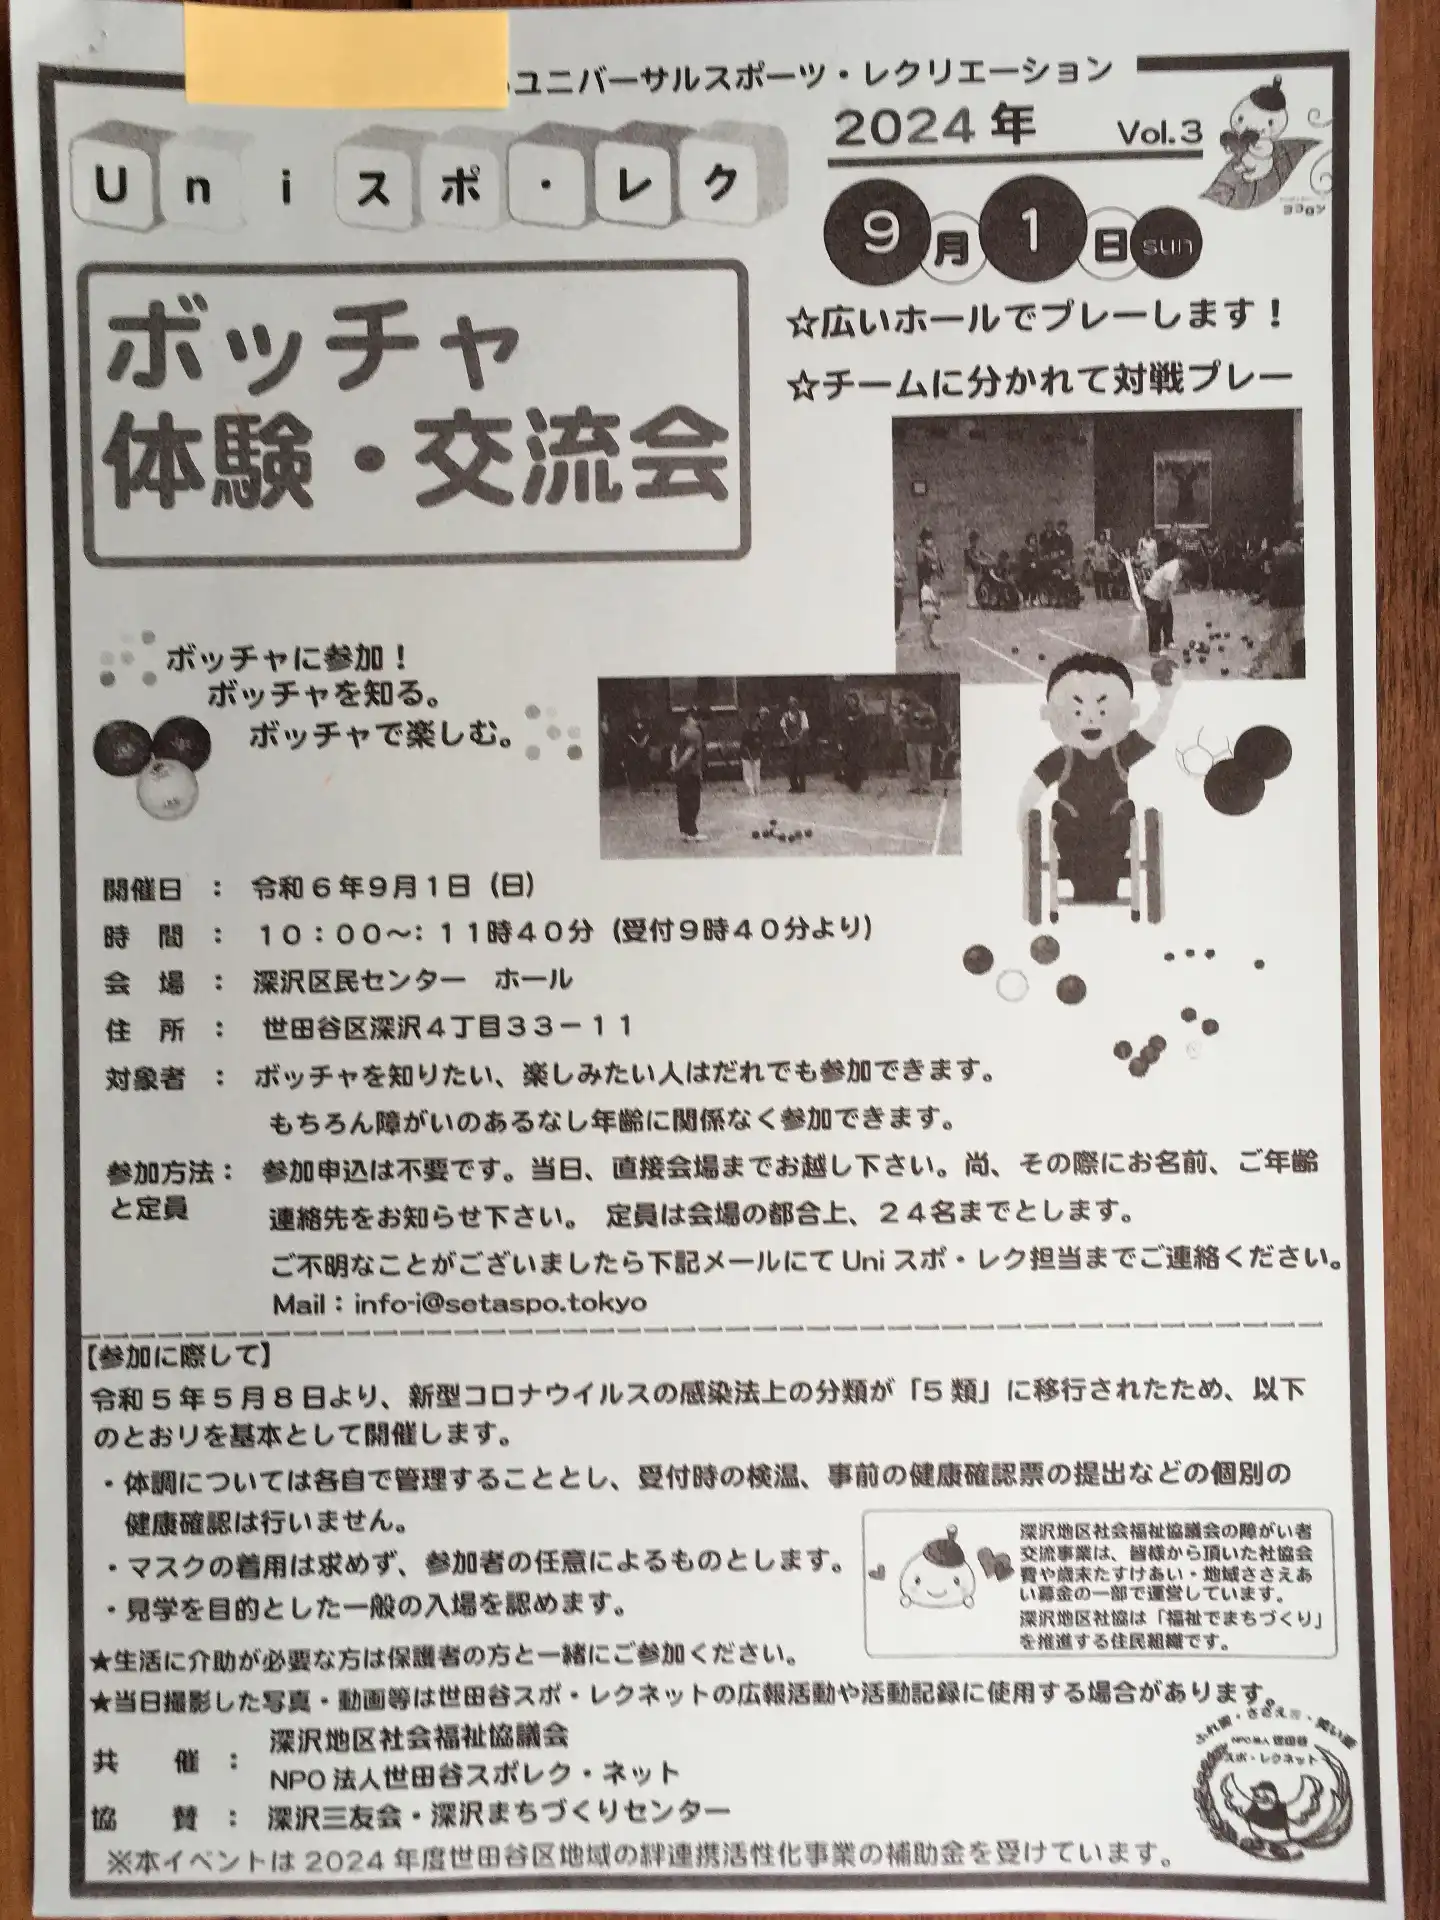 ユニバーサルスポーツ・レクリエーション
2024年 Vol.3
Uniスポ・レク
9月1日sun
ココロン
☆広いホールでプレーします！
☆チームに分かれて対戦プレー
ボッチャ
体験・交流会
ボッチャに参加！
ボッチャを知る。
ボッチャで楽しむ。
開催日 ： 令和６年９月１日（日）
時 間 ： １０：００〜：１１時４０分（受付９時４０分より）
会 場 ： 深沢区民センター ホール
住 所 ： 世田谷区深沢４丁目３３－１１
対象者 ： ボッチャを知りたい、楽しみたい人はだれでも参加できます。
もちろん障がいのあるなし年齢に関係なく参加できます。
参加方法： 参加申込は不要です。当日、直接会場までお越し下さい。尚、その際にお名前、ご年齢
と定員 連絡先をお知らせ下さい。 定員は会場の都合上、２４名までとします。
ご不明なことがございましたら下記メールにてUniスポ・レク担当までご連絡ください。
Mail：info-i@setaspo.tokyo
【参加に際して】
令和５年５月８日より、新型コロナウイルスの感染法上の分類が「５類」に移行されたため、以下
のとおリを基本として開催します。
・体調については各自で管理することとし、受付時の検温、事前の健康確認票の提出などの個別の
健康確認は行いません。
・マスクの着用は求めず、参加者の任意によるものとします。
・見学を目的とした一般の入場を認めます。
深沢地区社会福祉協議会の障がい者
交流事業は、皆様から頂いた社協会
費や歳末たすけあい・地域ささえあ
い募金の一部で運営しています。
深沢地区社協は「福祉でまちづくり」
を推進する住民組織です。
★生活に介助が必要な方は保護者の方と一緒にご参加ください。
★当日撮影した写真・動画等は世田谷スポ・レクネットの広報活動や活動記録に使用する場合があります。
共 催 ： 深沢地区社会福祉協議会
NPO法人世田谷スポレク・ネット
協 賛 ： 深沢三友会・深沢まちづくりセンター
NPO法人世田谷
スポ・レクネット
※本イベントは2024年度世田谷区地域の絆連携活性化事業の補助金を受けています。